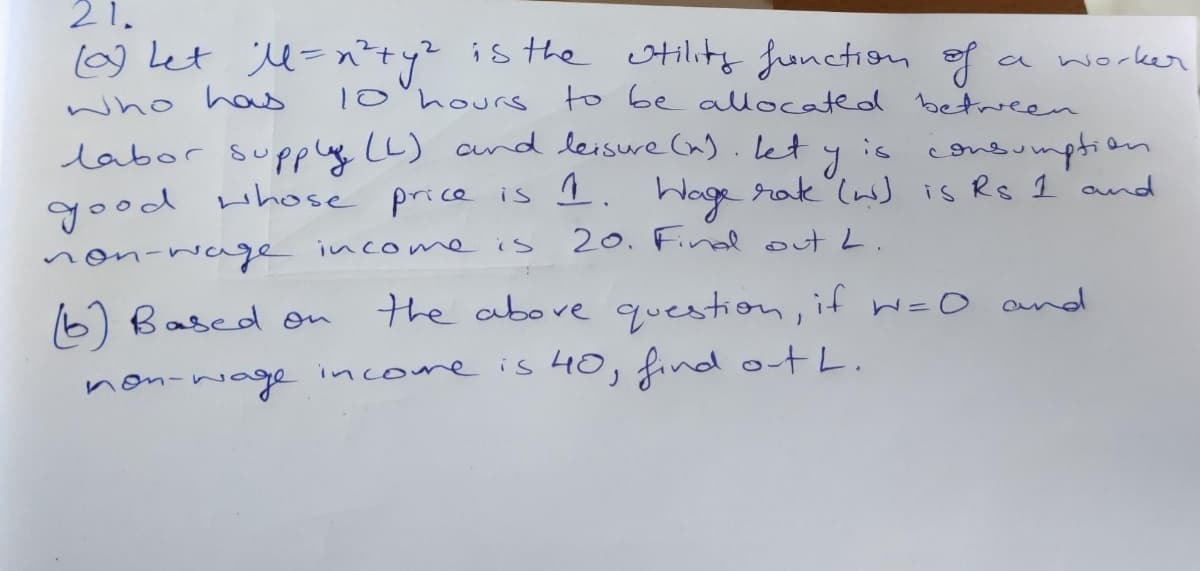 21.
(a) Let u = x²+y² is the utility function of a worker
who has 10 hours to be allocated between
labor supply (L) and leisure (x). Let y is consumption
good whose price is 1. Wage rate (w) is Rs 1 and
non-wage income is 20. Find out L.
(b) Based on the above question, if w=0 and
non-wage income is 40, find out L.